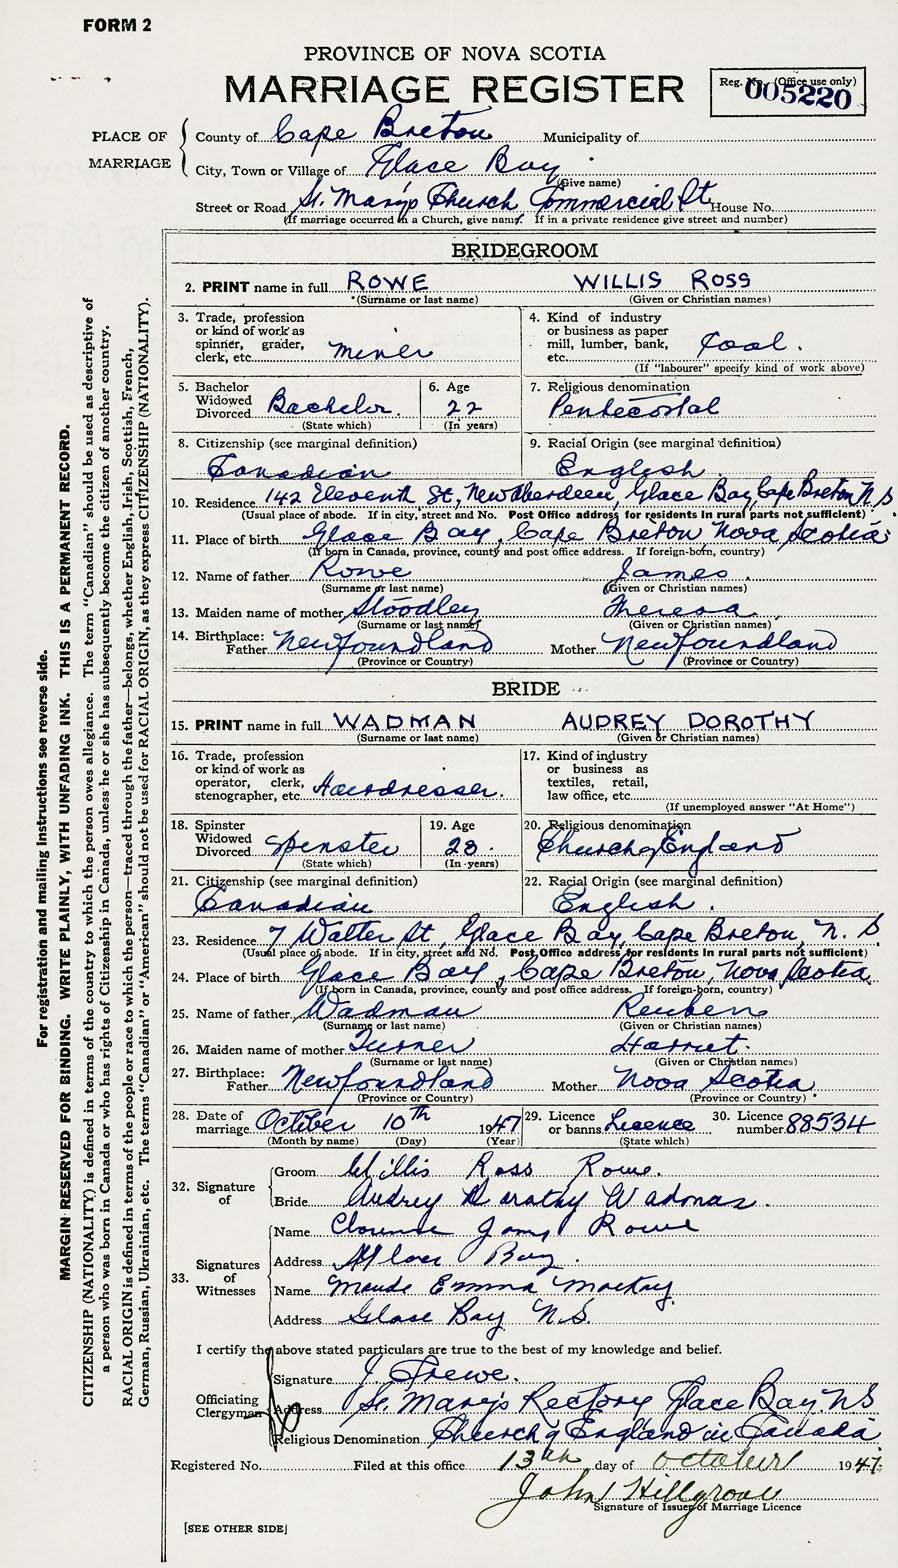 FORM 2
PROVINCE OF NOVA SCOTIA
MARRIAGE REGISTER
Reg. No. (Office use only)
005220
PLACE OF MARRIAGE
County of Cape Breton Municipality of
City, Town or Village of Glace Bay
(Give name)
Street or Road St. Mary's Church, Commercial St. House No.
(If marriage occurred in a Church, give name. If in a private residence give street and number)
BRIDEGROOM
2. PRINT name in full ROWE WILLIS ROSS
(Surname or last name) (Given or Christian names)
3. Trade, profession or kind of work as spinner, grader, clerk, etc. Miner
4. Kind of industry or business as paper mill, lumber, bank, etc. Coal.
(If "labourer" specify kind of work above)
5. Bachelor Widowed Divorced Bachelor.
(State which)
6. Age 22
(In years)
7. Religious denomination
Pentecostal
8. Citizenship (see marginal definition)
Canadian
9. Racial Origin (see marginal definition)
English.
10. Residence 142 Eleventh St., New Aberdeen, Glace Bay, Cape Breton N S
(Usual place of abode. If in city, street and No. Post Office address for residents in rural parts not sufficient)
11. Place of birth Glace Bay, Cape Breton, Nova Scotia
(If born in Canada, province, county and post office address. If foreign-born, country)
12. Name of father Rowe James.
(Surname or last name) (Given or Christian names)
13. Maiden name of mother Stoodley Theresa
(Surname or last name) (Given or Christian names)
14. Birthplace:
Father Newfoundland Mother Newfoundland
(Province or Country) (Province or Country)
BRIDE
15. PRINT name in full WADMAN AUDREY DOROTHY
(Surname or last name) (Given or Christian names)
16. Trade, profession or kind of work as operator, clerk, stenographer, etc. Hairdresser.
17. Kind of industry or business as textiles, retail, law office, etc.
(If unemployed answer "At Home")
18. Spinster Widowed Divorced Spinster
(State which)
19. Age 23.
(In years)
20. Religious denomination
Church of England
21. Citizenship (see marginal definition)
Canadian
22. Racial Origin (see marginal definition)
English.
23. Residence 7 Walter St, Glace Bay, Cape Breton, N. S.
(Usual place of abode. If in city, street and No. Post Office address for residents in rural parts not sufficient)
24. Place of birth Glace Bay, Cape Breton, Nova Scotia
(If born in Canada, province, county and post office address. If foreign-born, country)
25. Name of father Wadman Reuben
(Surname or last name) (Given or Christian names)
26. Maiden name of mother Turner Harriet.
(Surname or last name) (Given or Christian names)
27. Birthplace:
Father Newfoundland Mother Nova Scotia
(Province or Country) (Province or Country)
28. Date of marriage October 10th 1947
(Month by name) (Day) (Year)
29. Licence or banns Licence
(State which)
30. Licence number 88534
32. Signature of
Groom Willis Ross Rowe.
Bride Audrey Dorothy Wadman.
33. Signatures of Witnesses
Name Clarence James Rowe
Address Glace Bay.
Name Maude Emma Mackay
Address Glace Bay N.S.
I certify the above stated particulars are true to the best of my knowledge and belief.
Officiating Clergyman
Signature J. Frewe.
Address St. Mary's Rectory Glace Bay. N S
Religious Denomination Church of England in Canada
Registered No. Filed at this office 13th day of October 1947.
John Hillgrove
Signature of Issuer of Marriage Licence
[SEE OTHER SIDE]
For registration and mailing instructions see reverse side.
MARGIN RESERVED FOR BINDING. WRITE PLAINLY, WITH UNFADING INK. THIS IS A PERMANENT RECORD.
CITIZENSHIP (NATIONALITY) is defined in terms of the country to which the person owes allegiance. The term "Canadian" should be used as descriptive of
a person who was born in Canada or who has rights of Citizenship in Canada, unless he or she has subsequently become the citizen of another country.
RACIAL ORIGIN is defined in terms of the people or race to which the person—traced through the father—belongs, whether English, Irish, Scottish, French,
German, Russian, Ukrainian, etc. The terms "Canadian" or "American" should not be used for RACIAL ORIGIN, as they express CITIZENSHIP (NATIONALITY).